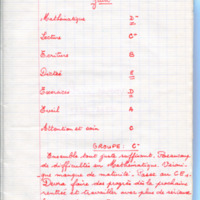 Juin
Mathématique D-
Lecture C+
Ecriture B
Dictées E
Exercices D
Eveil A
Attention et soin C
GROUPE: C-
Ensemble tout juste suffisant. Beaucoup
de difficultés en Mathématique. Voisin:
une manque de maturité. Passe au CE2.
Devra faire des progrès dès la prochaine
rentrée et travailler avec plus de sérieux